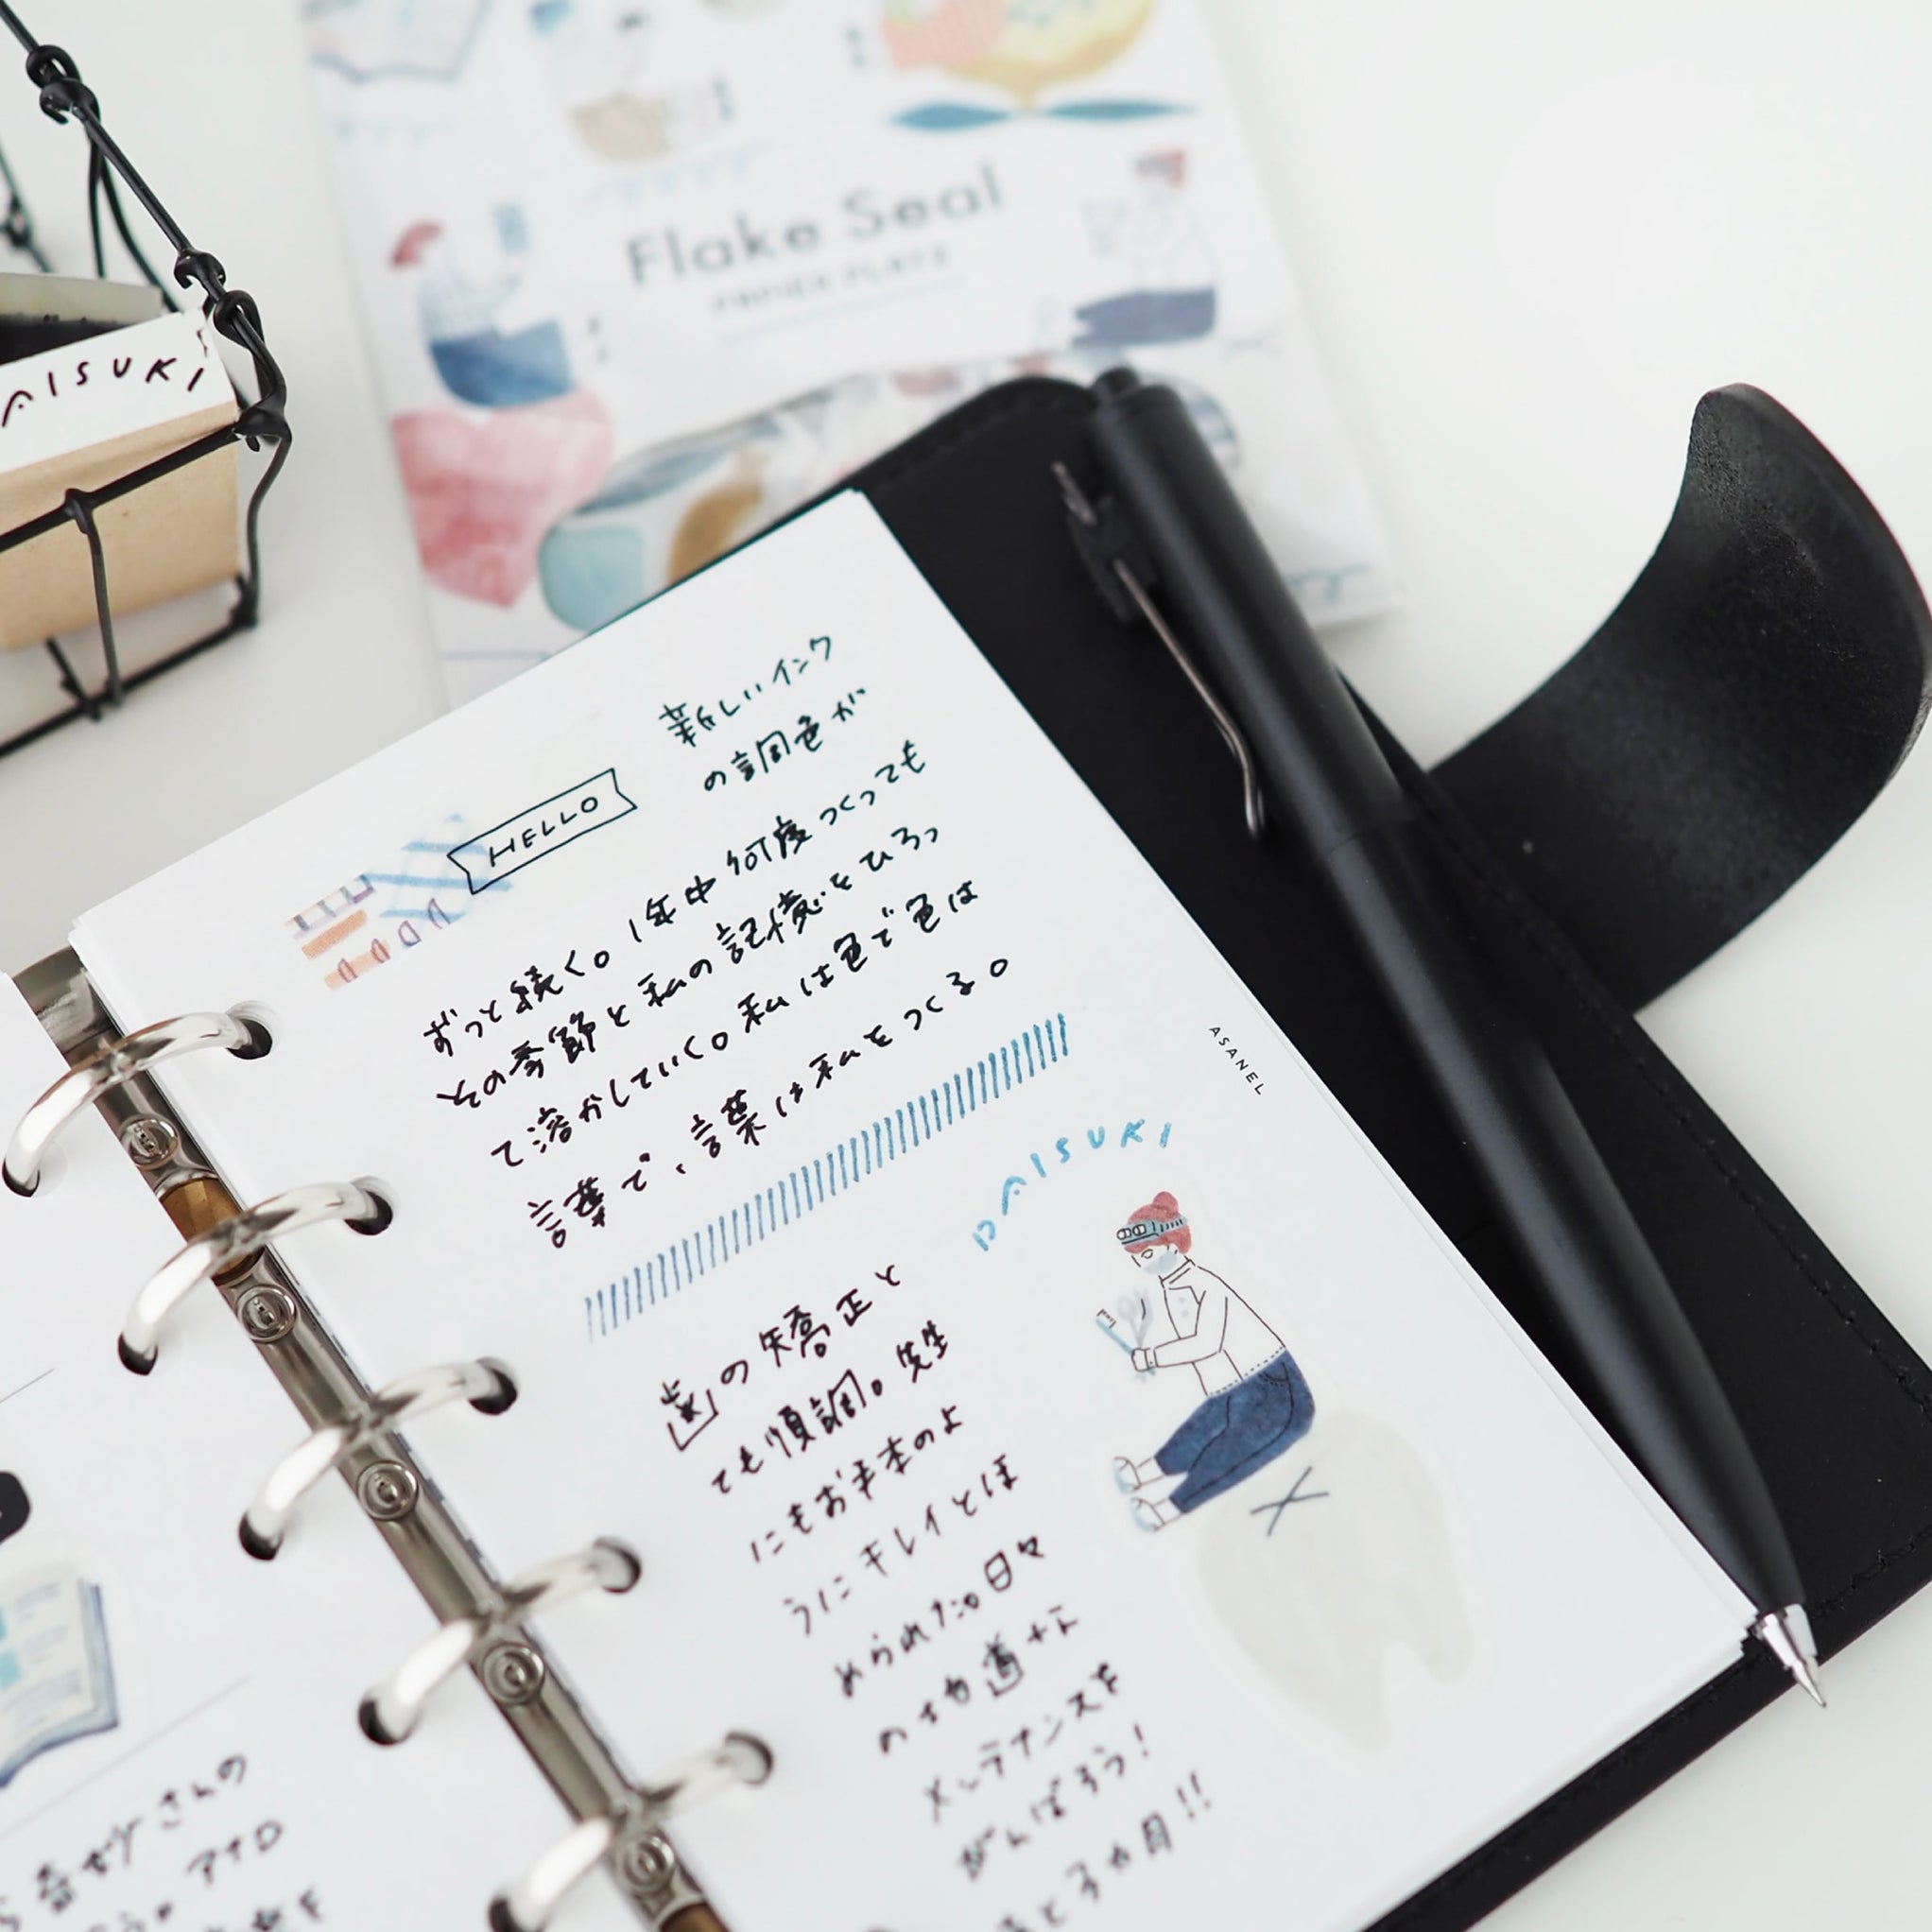 Flake Seal
PAPIER PLATZ
AISUKI
HELLO
新しいインク
の調色が
ずっと続く。1年中何度つくっても
その季節と私の記憶をひろっ
て溶かしていく。私は色で色は
言葉で、言葉は私をつくる。
ASANEL
DAISUKI
歯の矯正と
ても順調。先生
にもお手本のよ
うにキレイとほ
められた。日々
の地道な
メンテナンスを
がんばろう!
あと3カ月!!
さんの
アナロ